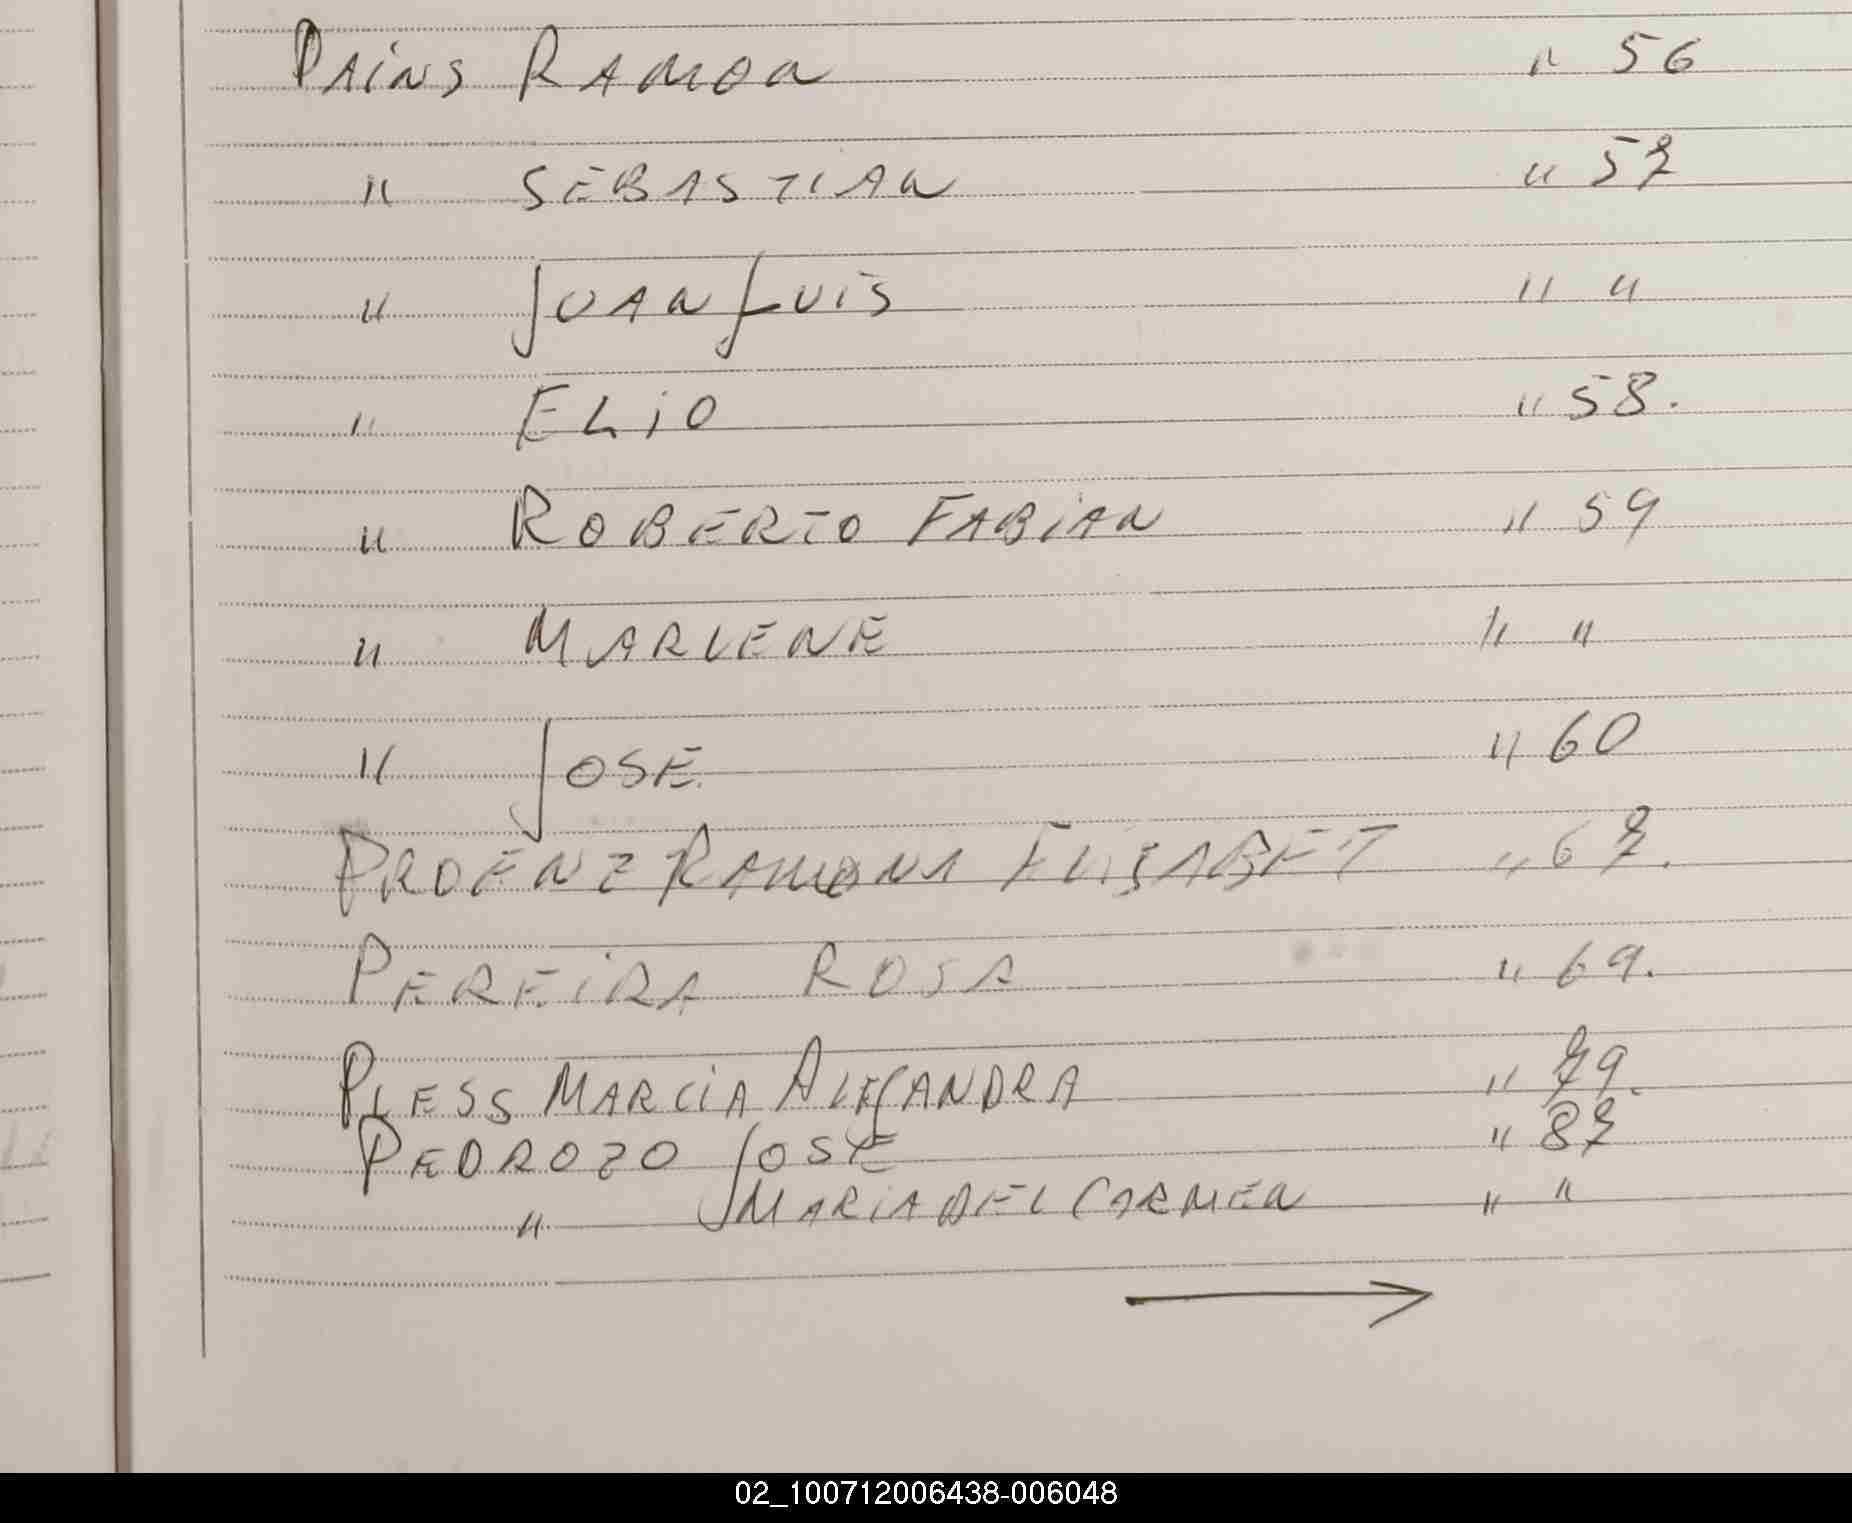 PAiNS RAMON " 56
" SEBASTIAN " 57
" JUAN LUIS " "
" ELiO " 58.
" ROBERTO FABiAN " 59
" MARLENE " "
" JOSE. " 60
PROENZ RAMONA ELISABET " 67.
PEREiRA ROSA " 69.
PLESS MARCiA ALEJANDRA " 79.
PEDROZO JOSE " 87
" MARiA DEL CARMEN " "
02_100712006438-006048